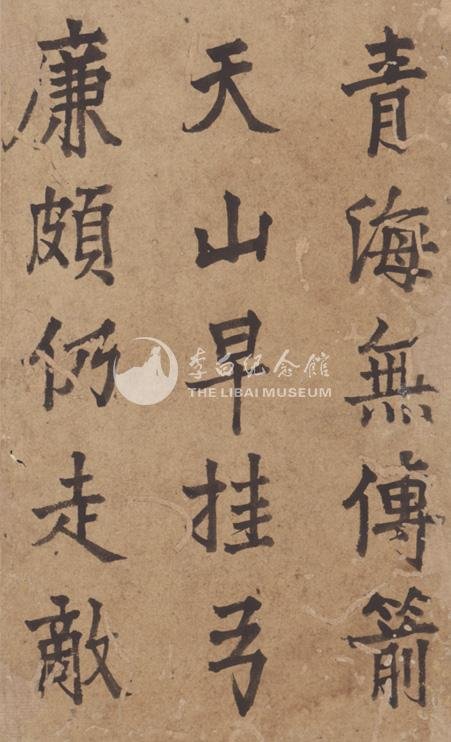 青海無傳箭
天山早挂弓
廉頗仍走敵
李白纪念館
THE LIBAI MUSEUM